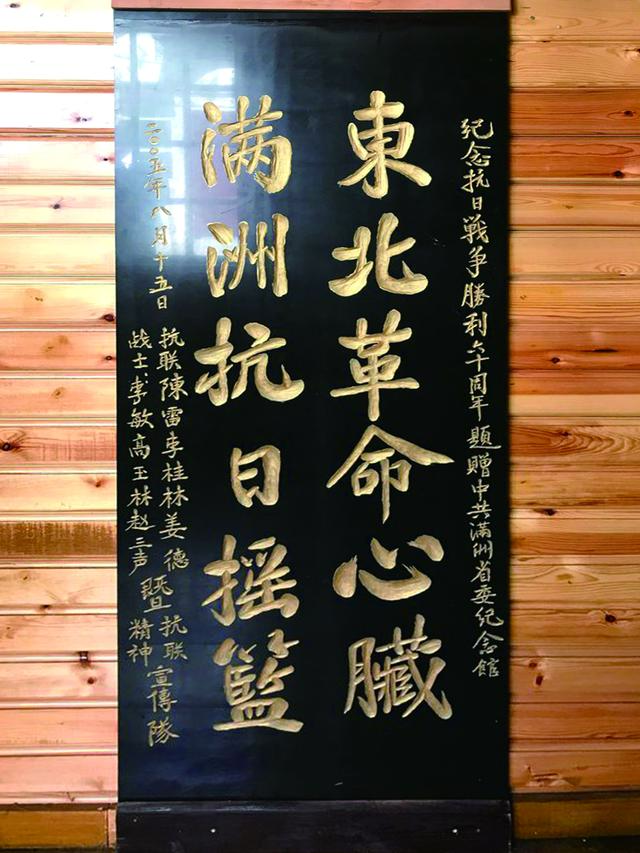 纪念抗日戰争勝利六十周年 题贈中共滿洲省委纪念馆
東北革命心臓
满洲抗日摇籃
二〇〇五年八月十五日
抗联陳雷李桂林姜德
战士:李敏高玉林赵三声
暨抗联精神宣傳隊